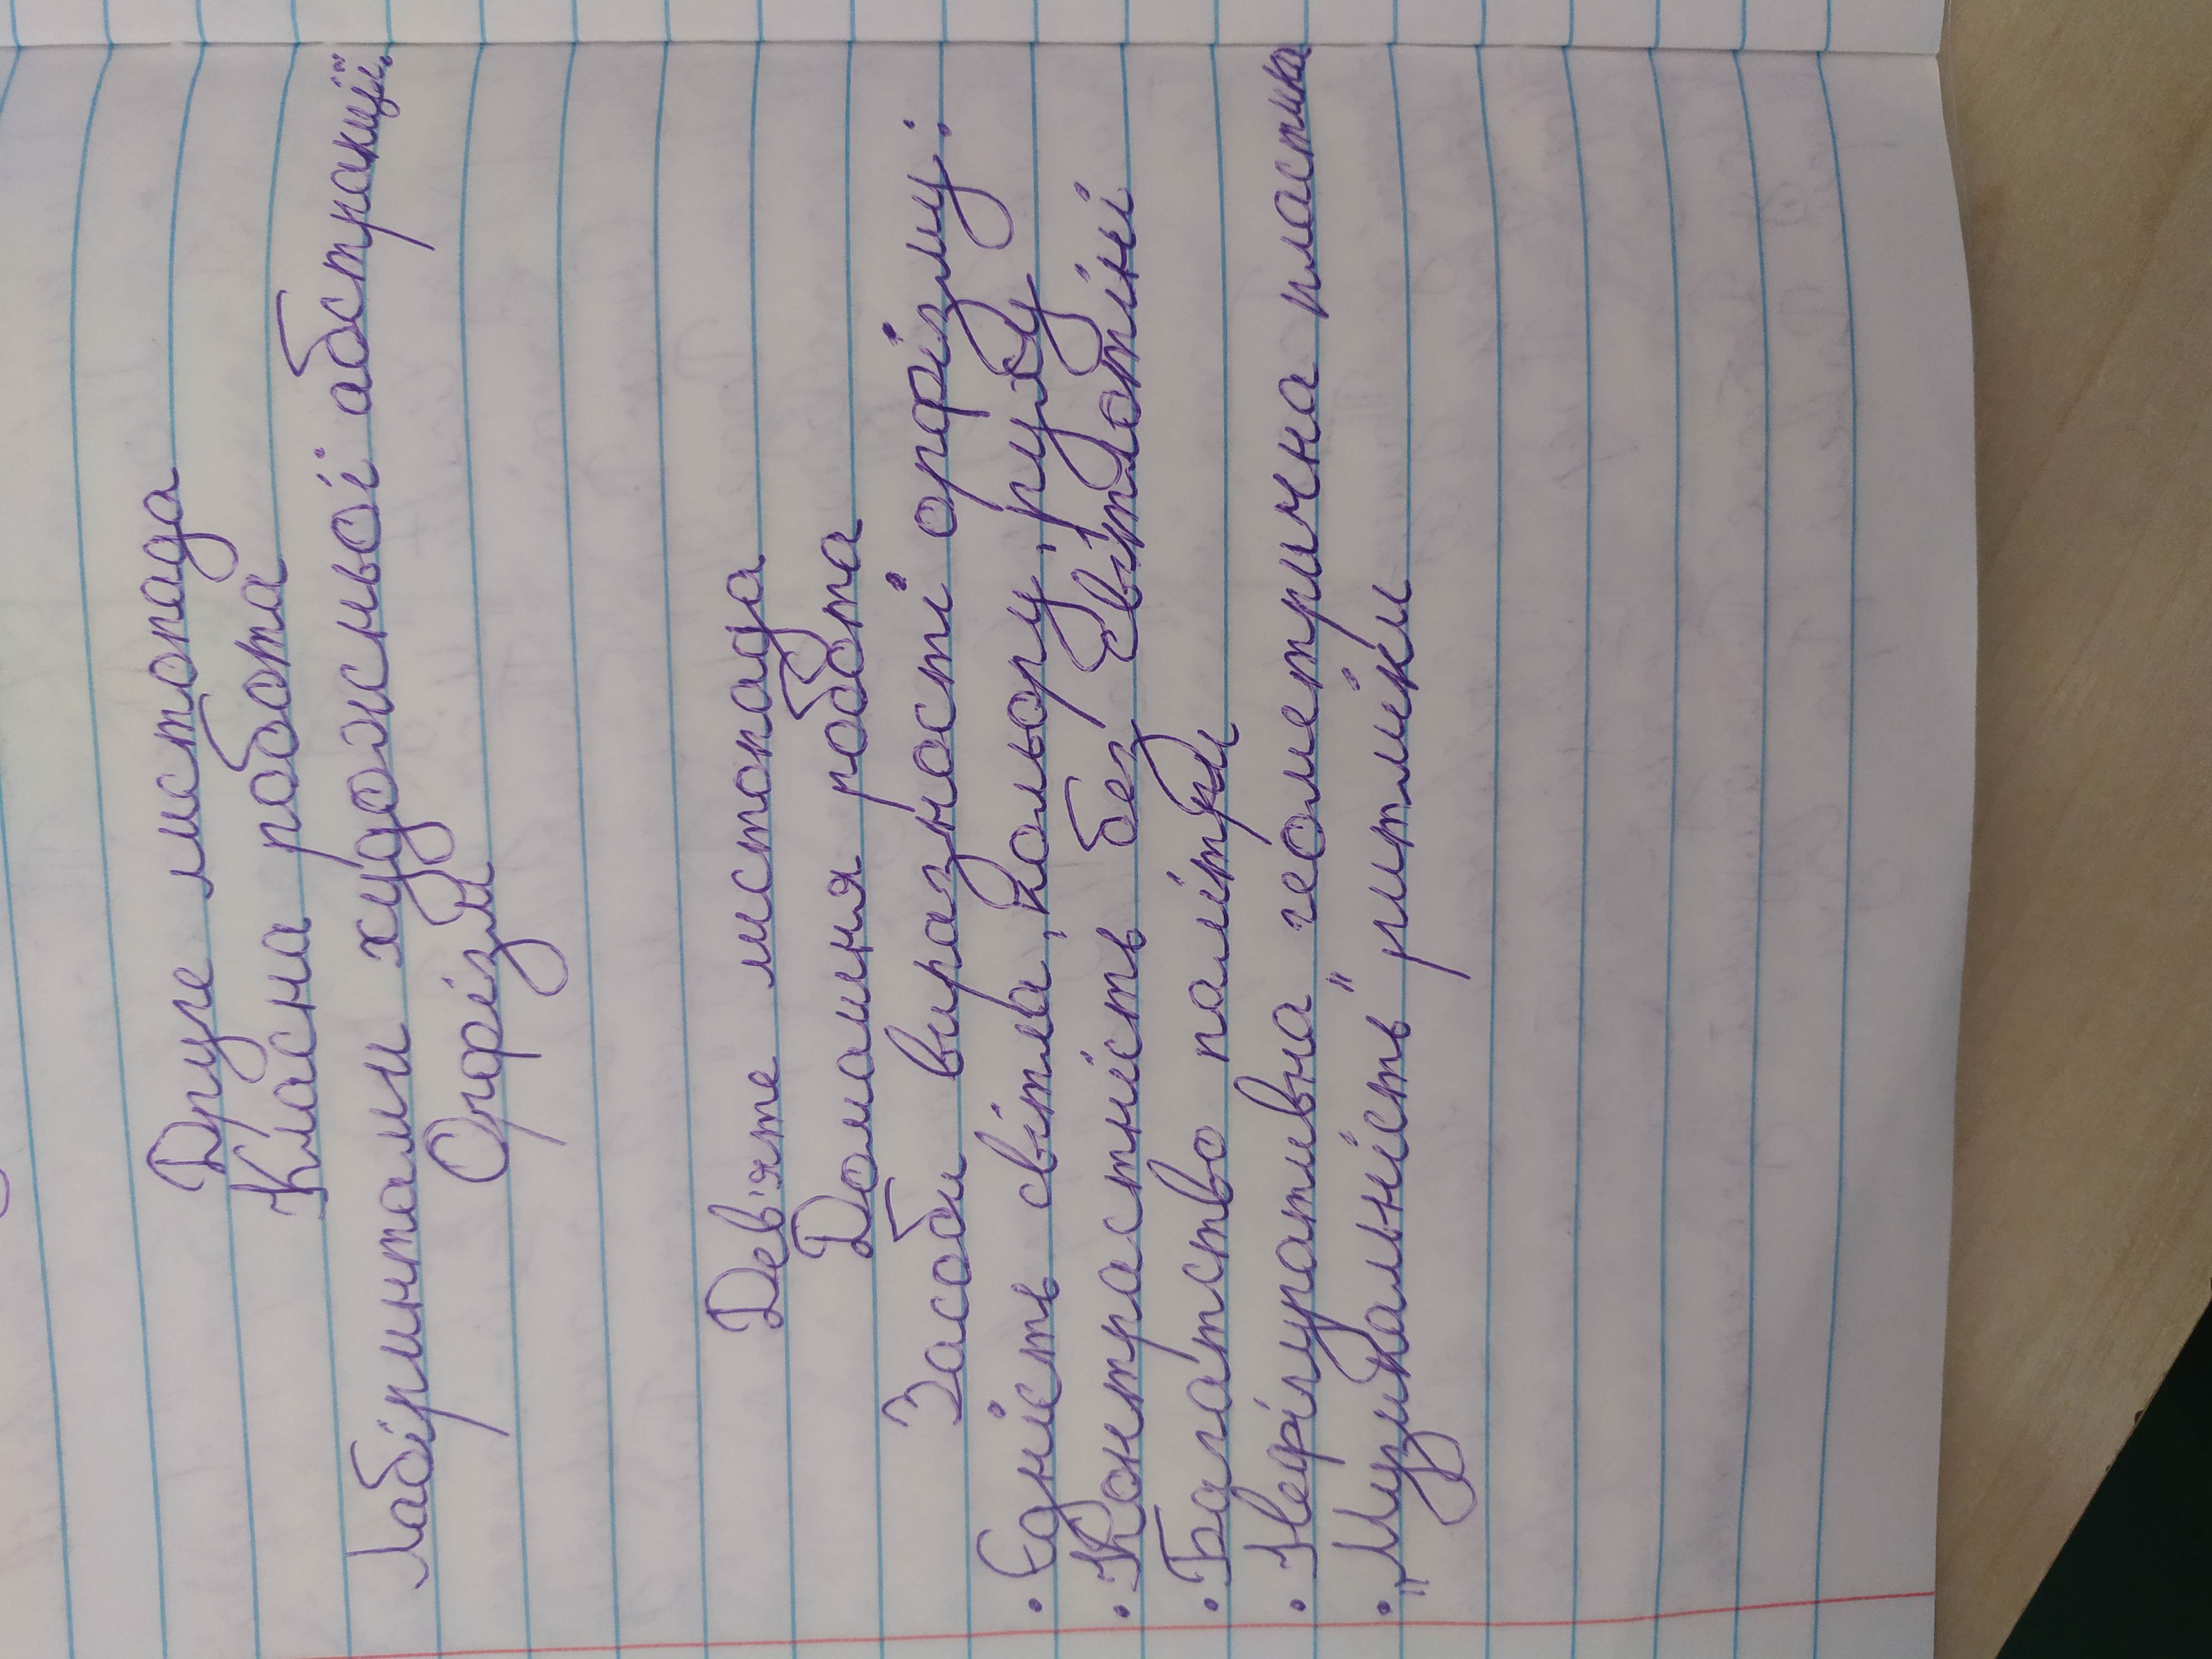 Друге листопада
Класна робота
Лабіринтами художньої абстракції.
Орфізм
Дев'яте листопада
Домашня робота
Засоби виразності орфізму:
• Єдність світла, кольору, руху
• Контрастність без світлотіні
• Багатство палітри
• Нефігуративна геометрична пластика
• „Музикальність" ритміки